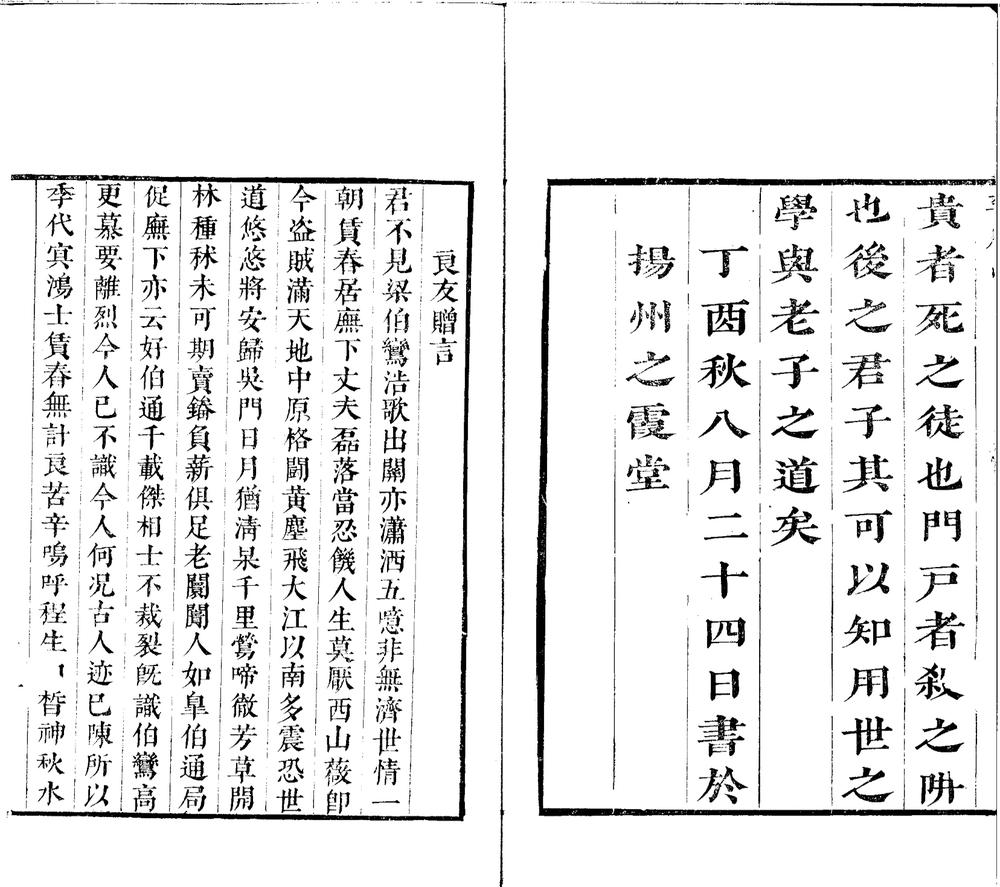 貴者死之徒也門戸者殺之阱
也後之君子其可以知用世之
學與老子之道矣
丁酉秋八月二十四日書於
揚州之霞堂
良友贈言
君不見梁伯鸞浩歌出關亦瀟洒五噫非無濟世情一
朝賃舂居廡下丈夫磊落當忍饑人生莫厭西山薇卽
今盗賊滿天地中原格鬭黃塵飛大江以南多震恐世
道悠悠將安歸吳門日月猶淸杲千里鶯啼徴芳草開
林種秫未可期賣鎓負薪俱足老闤闠人如皐伯通局
促廡下亦云好伯通千載傑相士不裁裂旣識伯鸞高
更慕要離烈今人已不識今人何况古人迹已陳所以
季代㝠鴻士賃舂無計良苦辛嗚呼程生晳神秋水